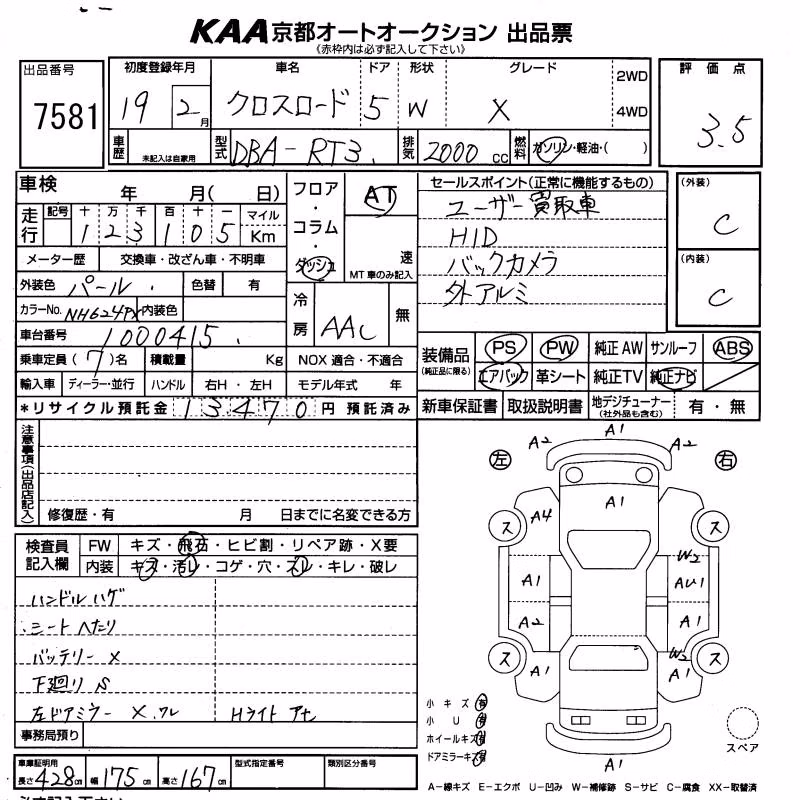 KAA 京都オートオークション 出品票
《赤枠内は必ず記入して下さい》
出品番号 7581
初度登録年月 車名 ドア 形状 グレード 2WD 4WD
19 2月 クロスロード 5 W X
評価点 3.5
車歴 未記入は自家用 型式 DBA-RT3 排気 2000 cc 燃料 ガソリン・軽油・( )
車検 年 月( 日)
走行 記号 十 万 千 百 十 一 マイル Km
1 2 3 1 0 5
メーター歴 交換車・改ざん車・不明車
外装色 パール 色替 有
カラーNo. NH624PX 内装色
車台番号 1000415
乗車定員 (7)名 積載量 Kg NOX 適合・不適合
輸入車 ディーラー・並行 ハンドル 右H・左H モデル年式 年
*リサイクル預託金 13470 円 預託済み
フロア・コラム・ダッシュ
AT
速 MT車のみ記入
冷房 AAC 無
セールスポイント(正常に機能するもの)
ユーザー買取車
HID
バックカメラ
外アルミ
(外装) C
(内装) C
装備品 (純正品に限る) PS PW 純正AW サンルーフ ABS
エアバック 革シート 純正TV 純正ナビ
新車保証書 取扱説明書 地デジチューナー (社外品も含む) 有・無
注意事項(出品店記入)
修復歴・有 月 日までに名変できる方
検査員記入欄 FW キズ・飛石・ヒビ割・リペア跡・X要
内装 キズ・汚レ・コゲ・穴・スレ・キレ・破レ
ハンドルハゲ
シートへたり
バッテリー X
下廻り S
左ドアミラー X.ワレ Hライト アセ
事務局預り
車庫証明用 長さ 428cm 幅 175cm 高さ 167cm 型式指定番号 類別区分番号
左 右
A1
A2 A2
A1
A4
ス ス
W2
A1 AU1
A2 A1
ス W2 ス
A1 A1
A1
小キズ 有
小U 有
ホイールキズ 有
ドアミラーキズ 有
スペア
A-線キズ E-エクボ U-凹み W-補修跡 S-サビ C-腐食 XX-取替済